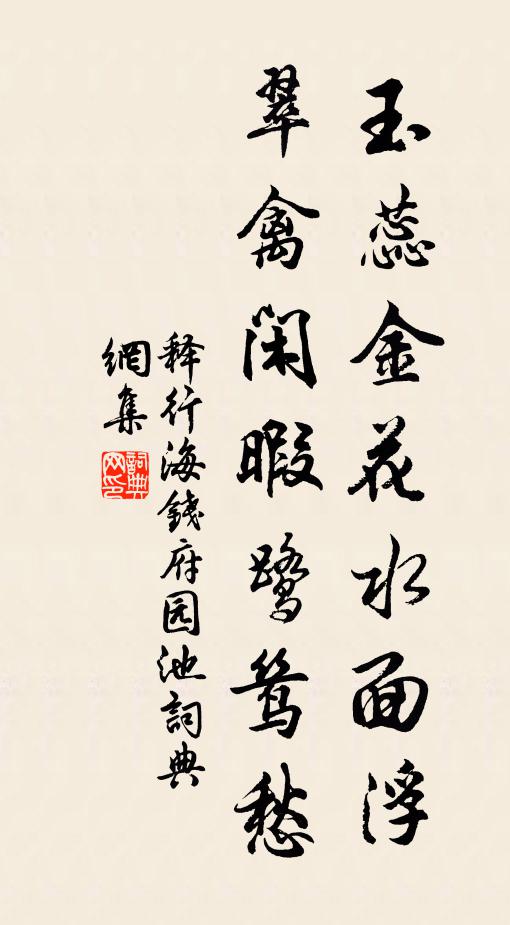 玉蕊金花水面浮
翠禽闲暇鹭鸶愁
释行海錢府园池詞典
網集
詞典网印